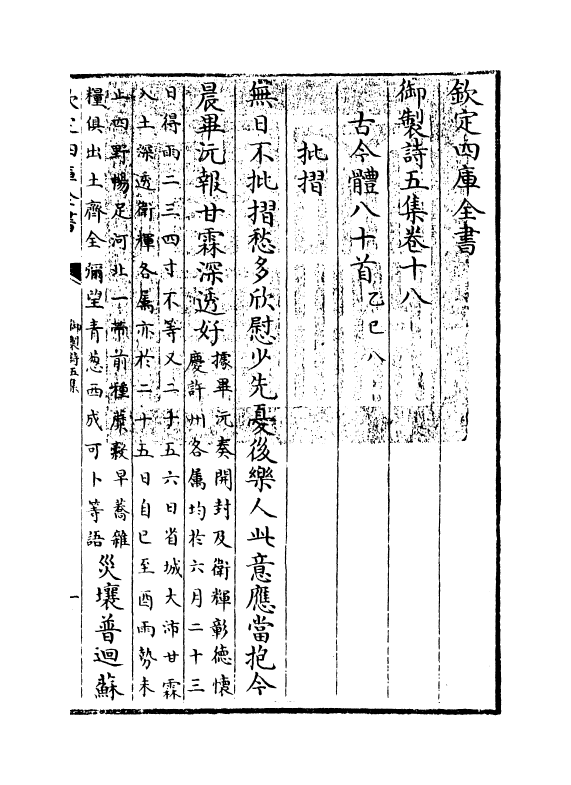 欽定四庫全書
御製詩五集卷十八
古今體八十首乙巳八
批摺
無日不批摺愁多欣慰少先憂後樂人此意應當抱今
晨畢沅報甘霖深透好
據畢沅奏開封及衛輝彰德懷
慶許州各屬均於六月二十三
日得雨二三四寸不等又二十五六日省城大沛甘霖
入土深透衛輝各屬亦於二十五日自巳至酉雨勢未
止四野暢足河北一帶前種穀早蕎雜
糧俱出土齊全彌望青葱西成可卜等語
災壤普迴蘇
欽定四庫全書
御製詩五集
一